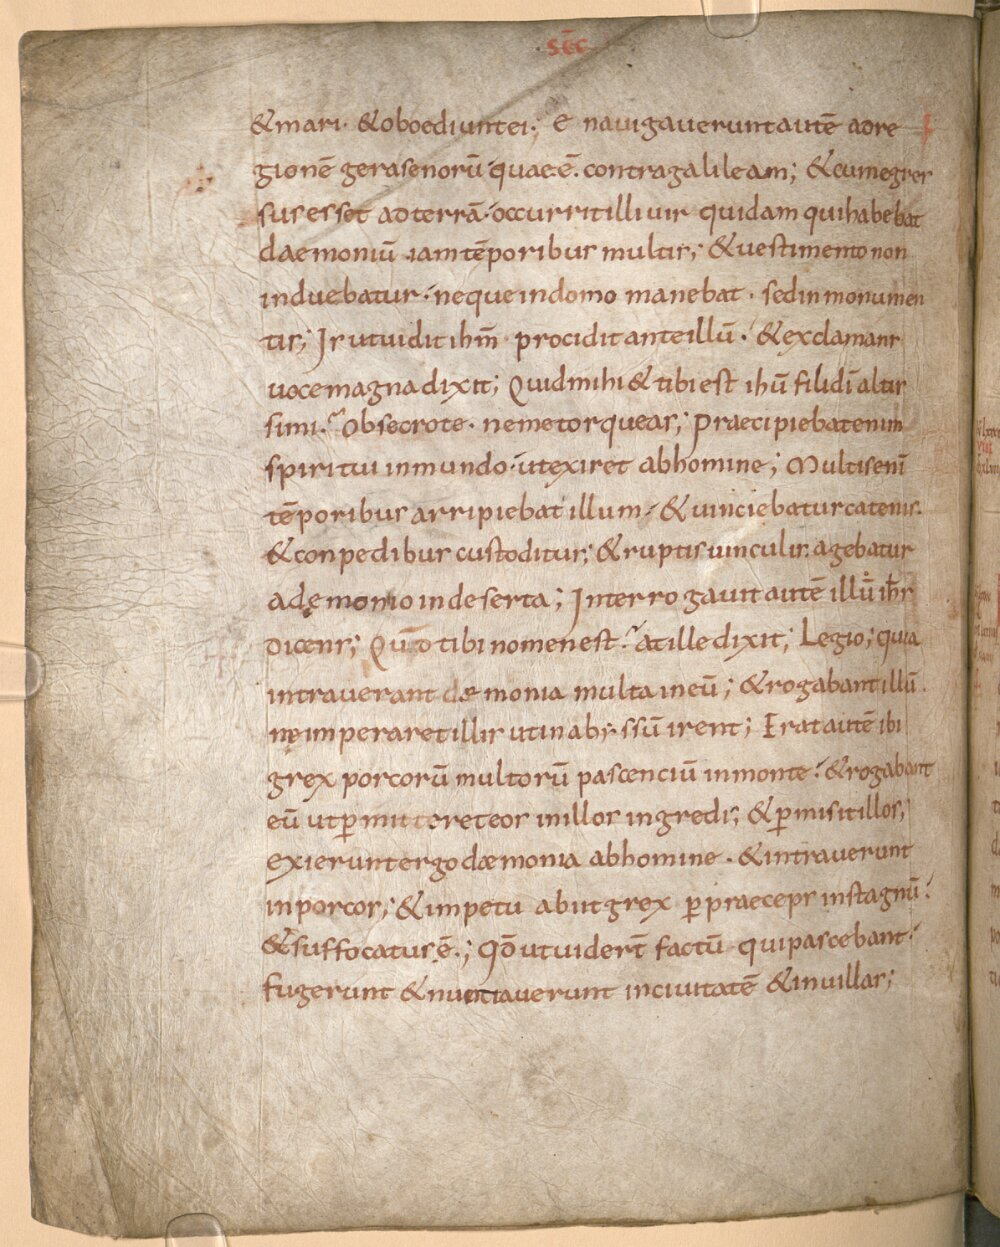 scĒ
&mari· &oboediuntei; e nauigaueruntautē adre
gionē gerasenorū· quaeē· contragalileam; &cumegres
susesset adterrā· occurritilliuir quidam quihabebat
daemoniū iamtēporibus multis; &uestimento non
induebatur· nequeindomo manebat· sedinmonumen
tis; Isutuidit ihm̄ prociditanteillū· &exclamans
uocemagnadixit; Quidmihi&tibiest ihū filidī altis
simi· Obsecrote· nemetorqueas; Praecipiebatenim
spirituiinmundo· utexiret abhomine; Multisenī
tēporibus arripiebat illum· &uinciebaturcatenis·
&conpedibus custoditus; &ruptisuinculis· agebatur
adęmonioindeserta; Interrogauitautē illū ihs̄
dicens; Quod tibinomenest· Atilledixit; Legio; quia
intrauerant dæmonia multa ineū; &rogabantillū·
neimperaretillis utinabyssū irent; Erat autē ibi
grex porcorū multorū pascenciū inmonte· &rogabant
eū utꝑmitteret eos inillos ingredi; &ꝑmisitillos;
exieruntergo dæmonia abhomine· &intrauerunt
inporcos; &impetu abiitgrex ꝑpraeceps instagnū·
&suffocatus ē·; Qđ utuiderт̄ factū quipascebant·
fugerunt &nuntiauerunt inciuitatē &inuillas;